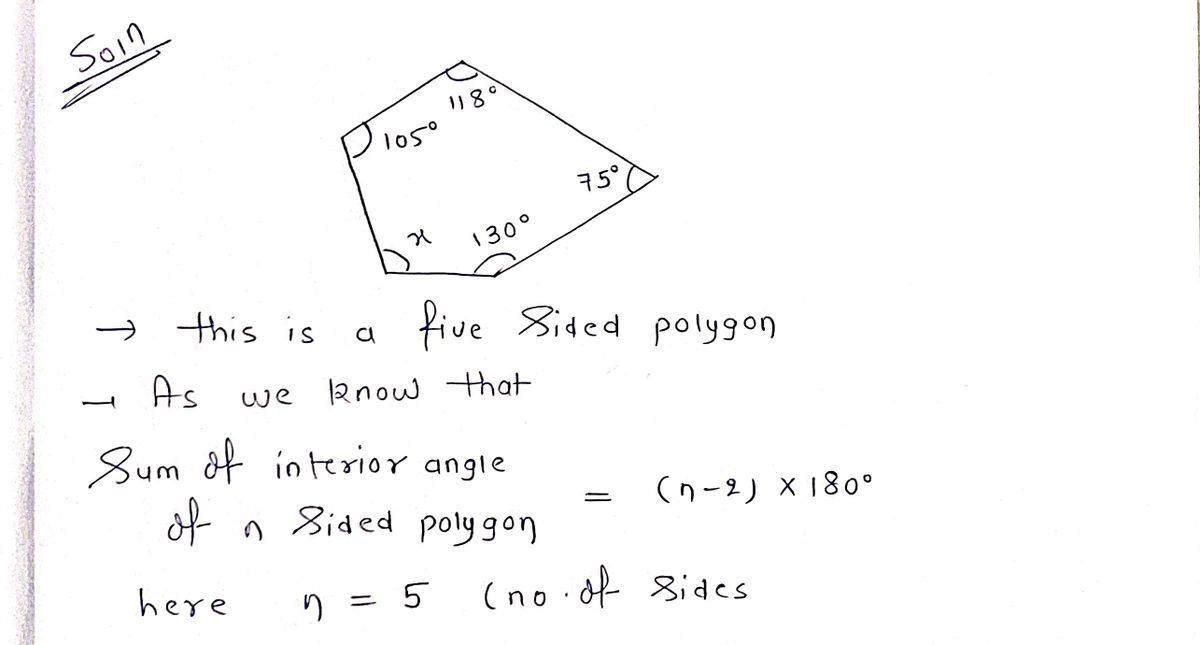 Soln
118°
105°
75°
x
130°
→ this is a five sided polygon
→ As we know that
Sum of interior angle
of n sided polygon = (n-2) × 180°
here n = 5 (no. of sides